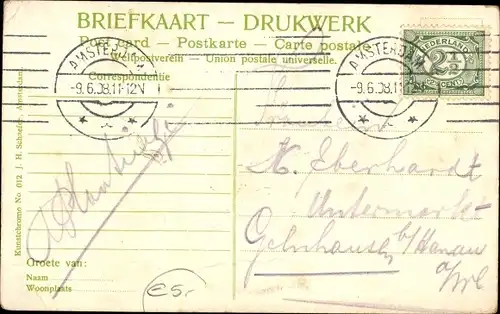 BRIEFKAART — DRUKWERK
Post card — Postkarte — Carte postale
Weltpostverein — Union postale universelle.
Correspondentie
AMSTERDAM
-9.6.08.11-12N
AMSTERDAM
-9.6.08.11-12N
NEDERLAND
2½
CENT
N. Eberhardt
Untermarkt
Gelnhausen b/Hanau
a/
Kunstchromo No 012 J. H. Schaefer, Amsterdam
Groete van:
Naam
Woonplaats
£5.-